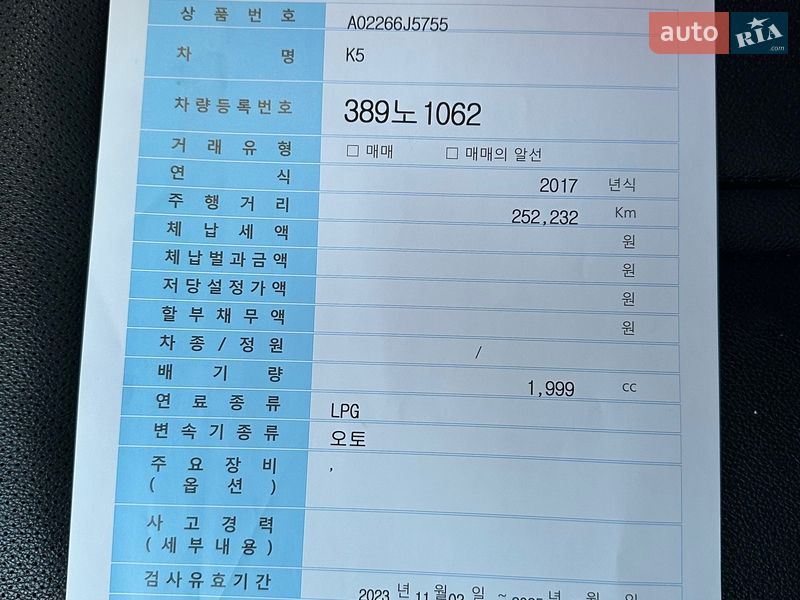 auto RIA .com
상품번호 A02266J5755
차명 K5
차량등록번호 389노1062
거래유형 □ 매매 □ 매매의 알선
연식 2017 년식
주행거리 252,232 Km
체납세액 원
체납벌과금액 원
저당설정가액 원
할부채무액 원
차종/정원 /
배기량 1,999 cc
연료종류 LPG
변속기종류 오토
주요장비 ,
(옵션)
사고경력
(세부내용)
검사유효기간 2023 년 11 월 02 일 ~ 년 월 일